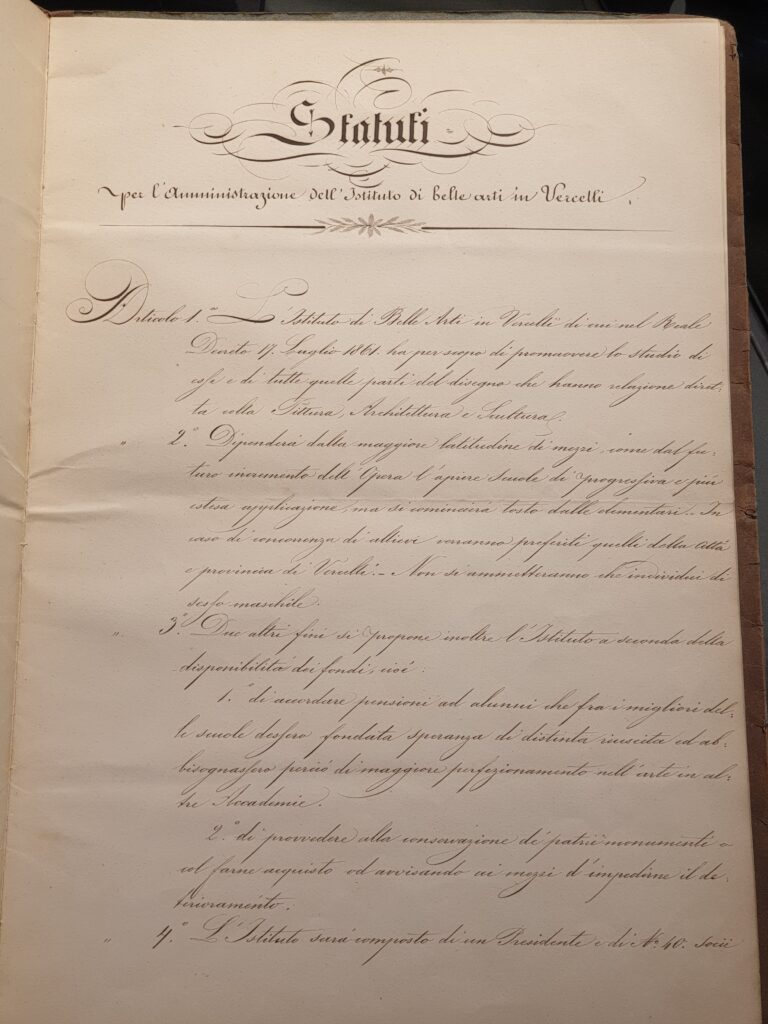 Statuti
per l'Amministrazione dell'Istituto di belle arti in Vercelli.
Articolo 1.° L'Istituto di Belle Arti in Vercelli di cui nel Reale
Decreto 17. Luglio 1861. ha per scopo di promuovere lo studio di
esse e di tutte quelle parti del disegno che hanno relazione diret=
ta colla Pittura, Architettura e Scultura.
" 2.° Dipenderà dalla maggiore latitudine di mezzi, come dal fu=
turo incremento dell'Opera l'aprire scuole di progressiva e più
estesa applicazione, ma si comincierà tosto dalle elementari. - In
caso di concorrenza di allievi verranno preferiti quelli della Città
e provincia di Vercelli. - Non si ammetteranno che individui di
sesso maschile.
" 3.° Due altri fini si propone inoltre l'Istituto a seconda della
disponibilità dei fondi, cioè:
1.° di accordare pensioni ad alunni che fra i migliori del=
le scuole dessero fondata speranza di distinta riuscita ed ab=
bisognassero perciò di maggiore perfezionamento nell'arte in al=
tre Accademie.
2.° di provvedere alla conservazione de' patrii monumenti o
col farne acquisto od avvisando ai mezzi d'impedirne il de=
terioramento.
" 4.° L'Istituto sarà composto di un Presidente e di N.° 40. Socii